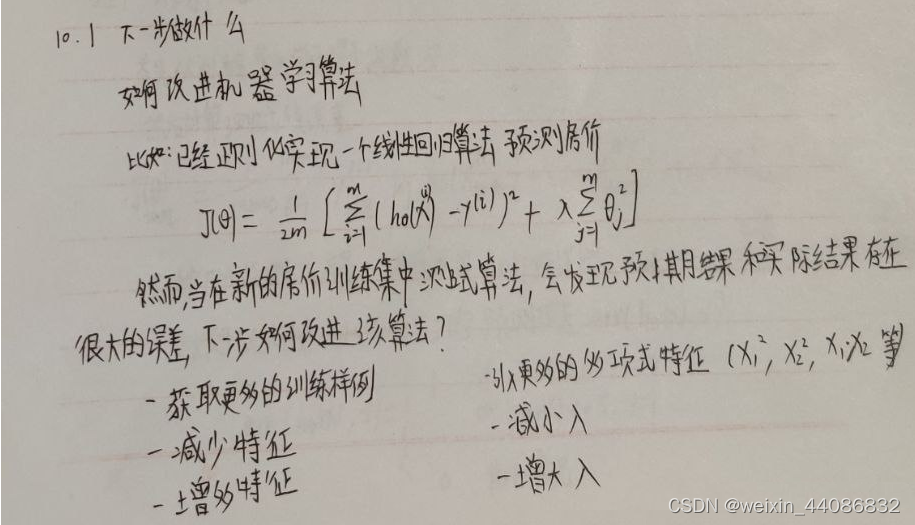 10.1 下一步做什么
如何改进机器学习算法
比如:已经正则化实现一个线性回归算法 预测房价
J(θ) = 1/2m [ ∑_{i=1}^{m} (hθ(x^{(i)}) - y^{(i)})² + λ ∑_{j=1}^{m} θ_j² ]
然而,当在新的房价训练集中测试算法,会发现预期结果和实际结果存在
很大的误差,下一步如何改进该算法?
- 获取更多的训练样例
- 引入更多的多项式特征 (X₁², X₂², X₁·X₂ 等
- 减少特征
- 减小入
- 增多特征
- 增大入
CSDN @weixin_44086832